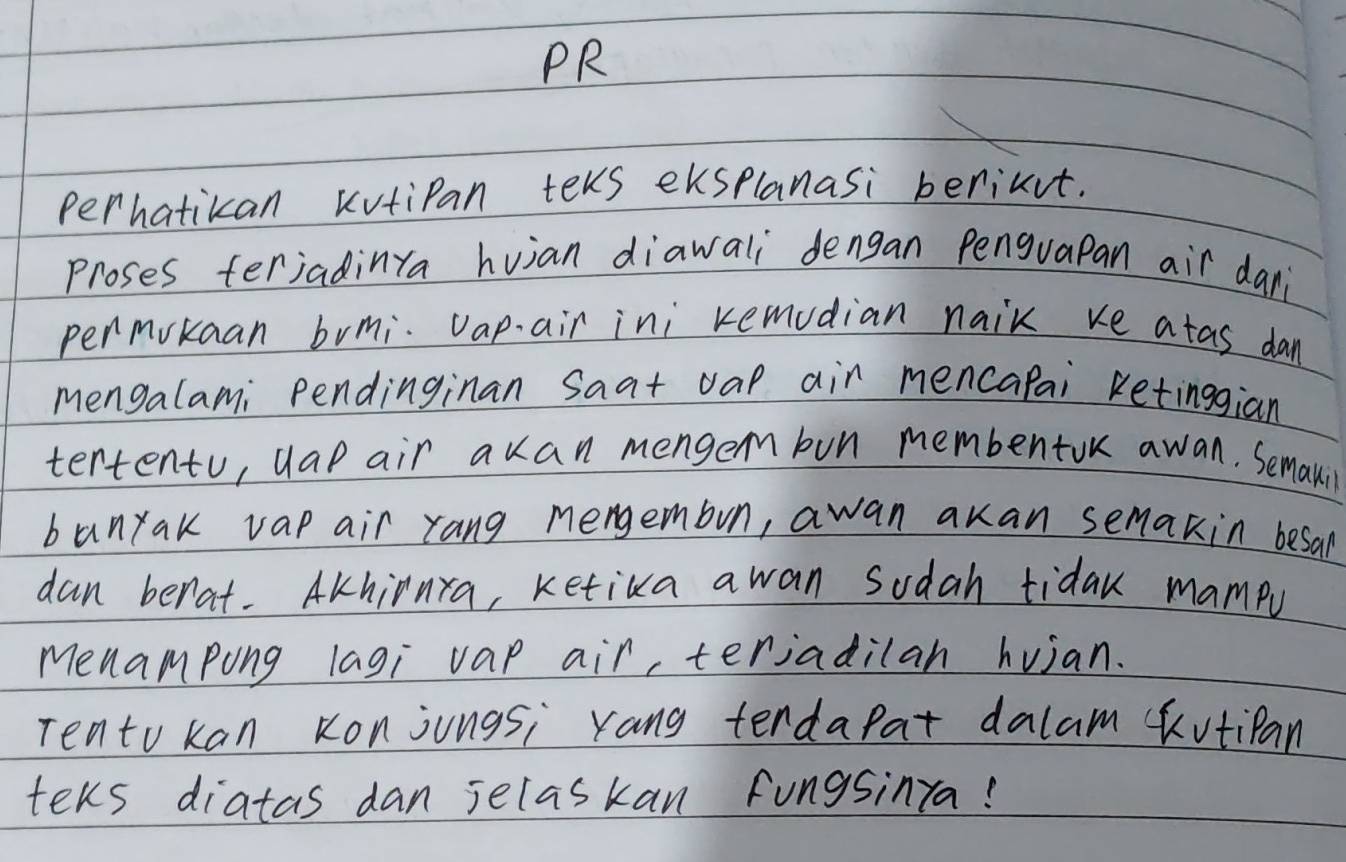 PR
Perhatikan kutipan teks eksplanasi berikut.
Proses terjadinya hujan diawali dengan penguapan air dari
permukaan bumi. Uap.air ini kemudian naik ke atas dan
mengalami pendinginan saat uap air mencapai ketinggian
tertentu, uap air akan mengembun membentuk awan. Semakin
banyak uap air yang mengembun, awan akan semakin besar
dan berat. Akhirnya, ketika awan sudah tidak mampu
menampung lagi uap air, terjadilah hujan.
Tentukan konjungsi yang terdapat dalam kutipan
teks diatas dan jelaskan fungsinya!